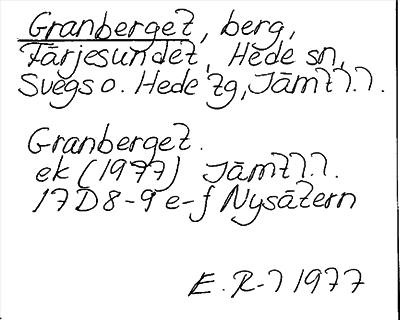 Granberget, berg,
Färjesundet, Hede sn,
Svegs o. Hede tg, Jämtl.l.
Granberget.
ek (1977) Jämtl.l.
17D 8-9 e-f Nysätern
E. R-l 1977